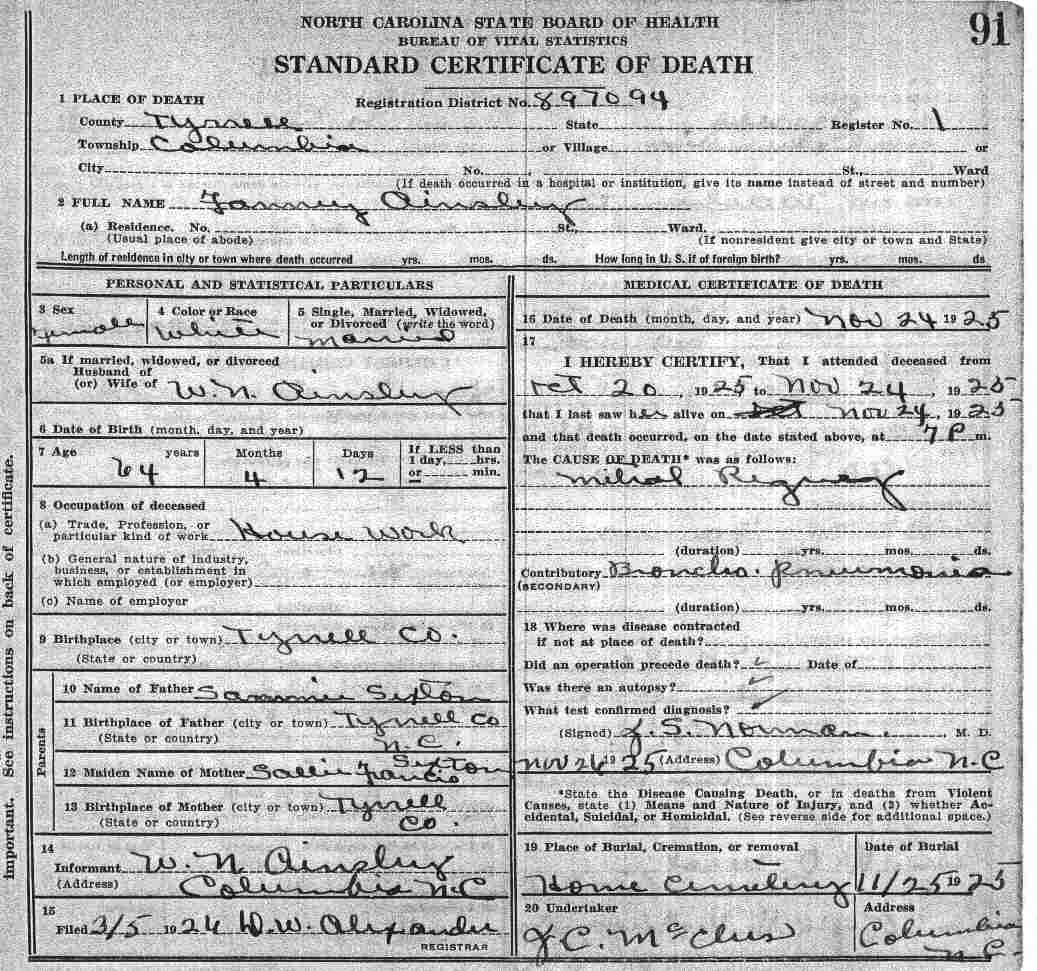 NORTH CAROLINA STATE BOARD OF HEALTH
BUREAU OF VITAL STATISTICS
STANDARD CERTIFICATE OF DEATH
91
1 PLACE OF DEATH
Registration District No. 897094
County Tyrrell State Register No. 1
Township Columbia or Village or
City No. , St., Ward
(If death occurred in a hospital or institution, give its name instead of street and number)
2 FULL NAME Fanney Ainsley
(a) Residence. No. St., Ward.
(Usual place of abode) (If nonresident give city or town and State)
Length of residence in city or town where death occurred yrs. mos. ds. How long in U. S. if of foreign birth? yrs. mos. ds
PERSONAL AND STATISTICAL PARTICULARS
3 Sex
Female
4 Color or Race
White
5 Single, Married, Widowed,
or Divorced (write the word)
Married
5a If married, widowed, or divorced
Husband of
(or) Wife of W. N. Ainsley
6 Date of Birth (month, day, and year)
7 Age years Months Days If LESS than
1 day, hrs.
or min.
64 4 12
8 Occupation of deceased
(a) Trade, Profession, or
particular kind of work House Work
(b) General nature of industry,
business, or establishment in
which employed (or employer)
(c) Name of employer
9 Birthplace (city or town) Tyrrell Co.
(State or country)
Parents
10 Name of Father Sammie Sexton
11 Birthplace of Father (city or town) Tyrrell Co
(State or country) N.C.
12 Maiden Name of Mother Sallie Francis Sexton
13 Birthplace of Mother (city or town) Tyrrell
(State or country) Co.
14
Informant W. N. Ainsley
(Address) Columbia N.C
15
Filed 3/5 1926 W. W. Alexander
REGISTRAR
MEDICAL CERTIFICATE OF DEATH
16 Date of Death (month, day, and year) Nov 24 1925
17
I HEREBY CERTIFY, That I attended deceased from
Oct 20, 1925 to Nov 24, 1925
that I last saw her alive on Nov 24, 1925
and that death occurred, on the date stated above, at 7 P m.
The CAUSE OF DEATH* was as follows:
Mitral
(duration) yrs. mos. ds.
Contributory Broncho. Pneumonia
(SECONDARY)
(duration) yrs. mos. ds.
18 Where was disease contracted
if not at place of death?
Did an operation precede death? Date of
Was there an autopsy?
What test confirmed diagnosis?
(Signed) J. S. Norman, M. D.
Nov 26 1925 (Address) Columbia N.C
*State the Disease Causing Death, or in deaths from Violent
Causes, state (1) Means and Nature of Injury, and (2) whether Ac-
cidental, Suicidal, or Homicidal. (See reverse side for additional space.)
19 Place of Burial, Cremation, or removal
Home Cemetery
Date of Burial
11/25 1925
20 Undertaker
J C.
Address
Columbia
N.C.
Important. See instructions on back of certificate.